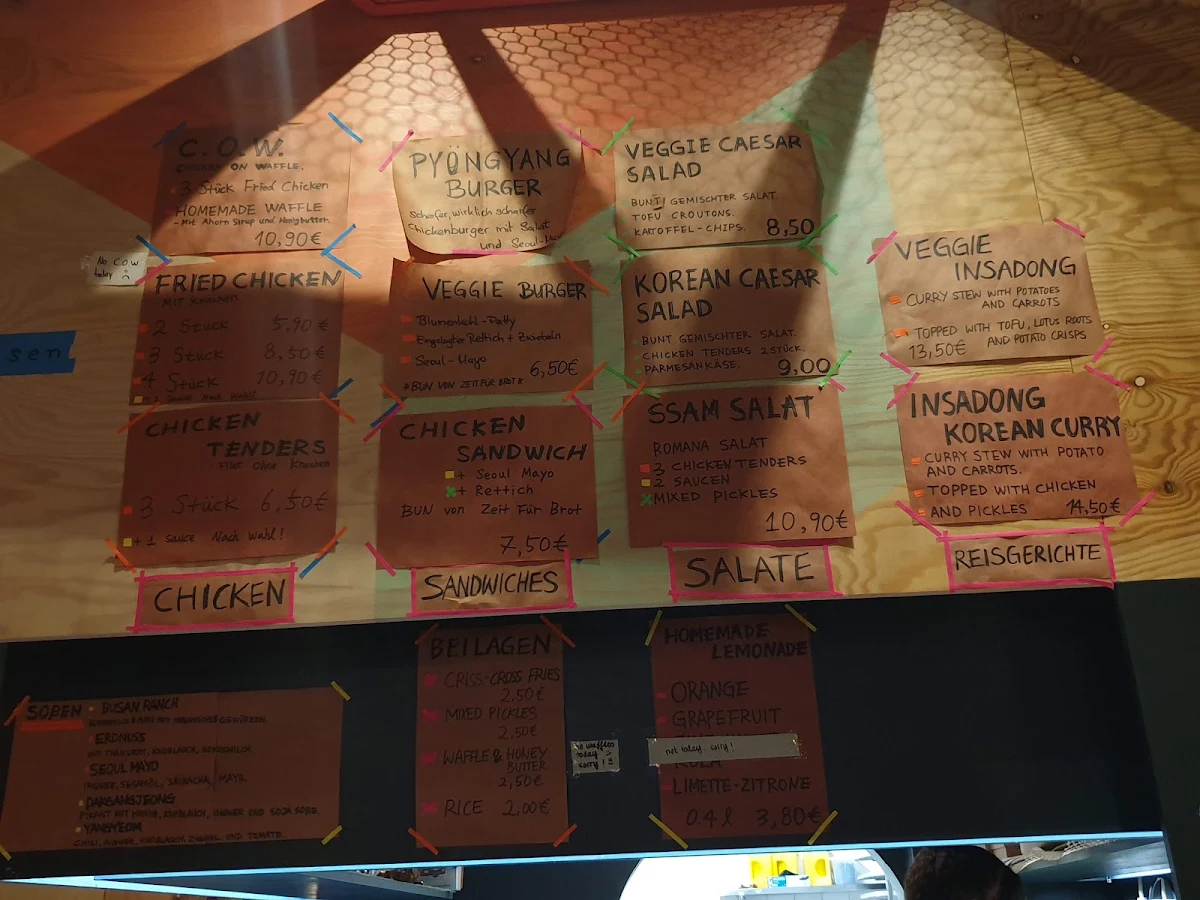 C.O.W.
CHICKEN ON WAFFLE.
3 Stück Fried Chicken
HOMEMADE WAFFLE
- Mit Ahorn Sirup und Honigbutter
10,90€
No C.O.W
today
FRIED CHICKEN
MIT KNOCHEN
2 Stück 5,90€
3 Stück 8,50€
4 Stück 10,90€
1 Sauce Nach Wahl!
CHICKEN
TENDERS
Filet Ohne Knochen
3 Stück 6,50€
+ 1 Sauce Nach Wahl!
CHICKEN
PYÖNGYANG
BURGER
Scharfer, wirklich scharfer
Chickenburger mit Salat
und Seoul-
VEGGIE BURGER
Blumenkohl-Patty
Eingelegter Rettich + Zwiebeln
Seoul-Mayo
6,50€
*BUN VON ZEIT FÜR BROT*
CHICKEN
SANDWICH
+ Seoul Mayo
+ Rettich
BUN von Zeit Für Brot
7,50€
SANDWICHES
VEGGIE CAESAR
SALAD
BUNT GEMISCHTER SALAT.
TOFU CROUTONS.
KARTOFFEL-CHIPS. 8,50
KOREAN CAESAR
SALAD
BUNT GEMISCHTER SALAT.
CHICKEN TENDERS 2 STÜCK.
PARMESANKÄSE. 9,00
SSAM SALAT
ROMANA SALAT
3 CHICKEN TENDERS
2 SAUCEN
MIXED PICKLES
10,90€
SALATE
VEGGIE
INSADONG
CURRY STEW WITH POTATOES
AND CARROTS
TOPPED WITH TOFU, LOTUS ROOTS
AND POTATO CRISPS
13,50€
INSADONG
KOREAN CURRY
CURRY STEW WITH POTATO
AND CARROTS.
TOPPED WITH CHICKEN
AND PICKLES 14,50€
REISGERICHTE
sen
BUSAN RANCH
ERDNUSS
SEOUL MAYO
INGWER, SESAMÖL, SRIRACHA, MAYO.
DAKGANGJEONG
PIKANT MIT HONIG, KNOBLAUCH, INGWER UND SOJA
YANGNYEOM
CHILI, INGWER, KNOBLAUCH, ZWIEBEL UND TOMATE.
BEILAGEN
CRISS-CROSS FRIES
2,50€
MIXED PICKLES
2,50€
WAFFLE & HONEY
BUTTER
2,50€
RICE 2,00€
no waffles
today
sorry!
HOMEMADE
LEMONADE
ORANGE
GRAPEFRUIT
not today.. sorry!
LIMETTE-ZITRONE
0.4 l 3,80€